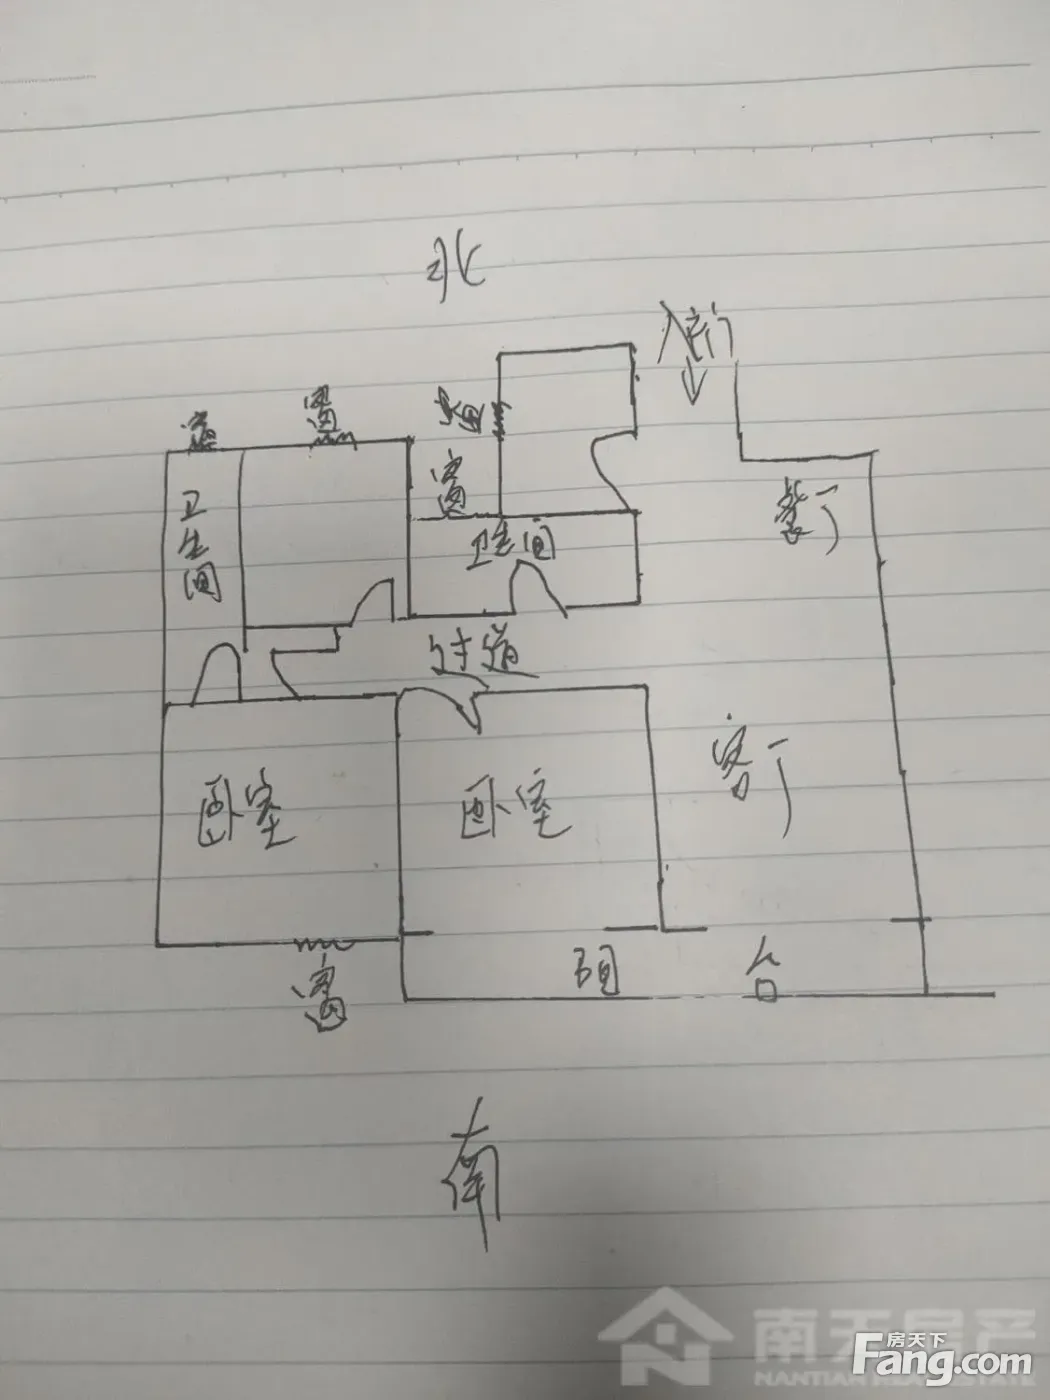 北
入户门
窗
窗
窗
窗
餐厅
卫生间
卫生间
过道
客厅
卧室
卧室
阳台
窗
南
南天房产
NANTIAN REAL ESTATE
房天下
Fang.com